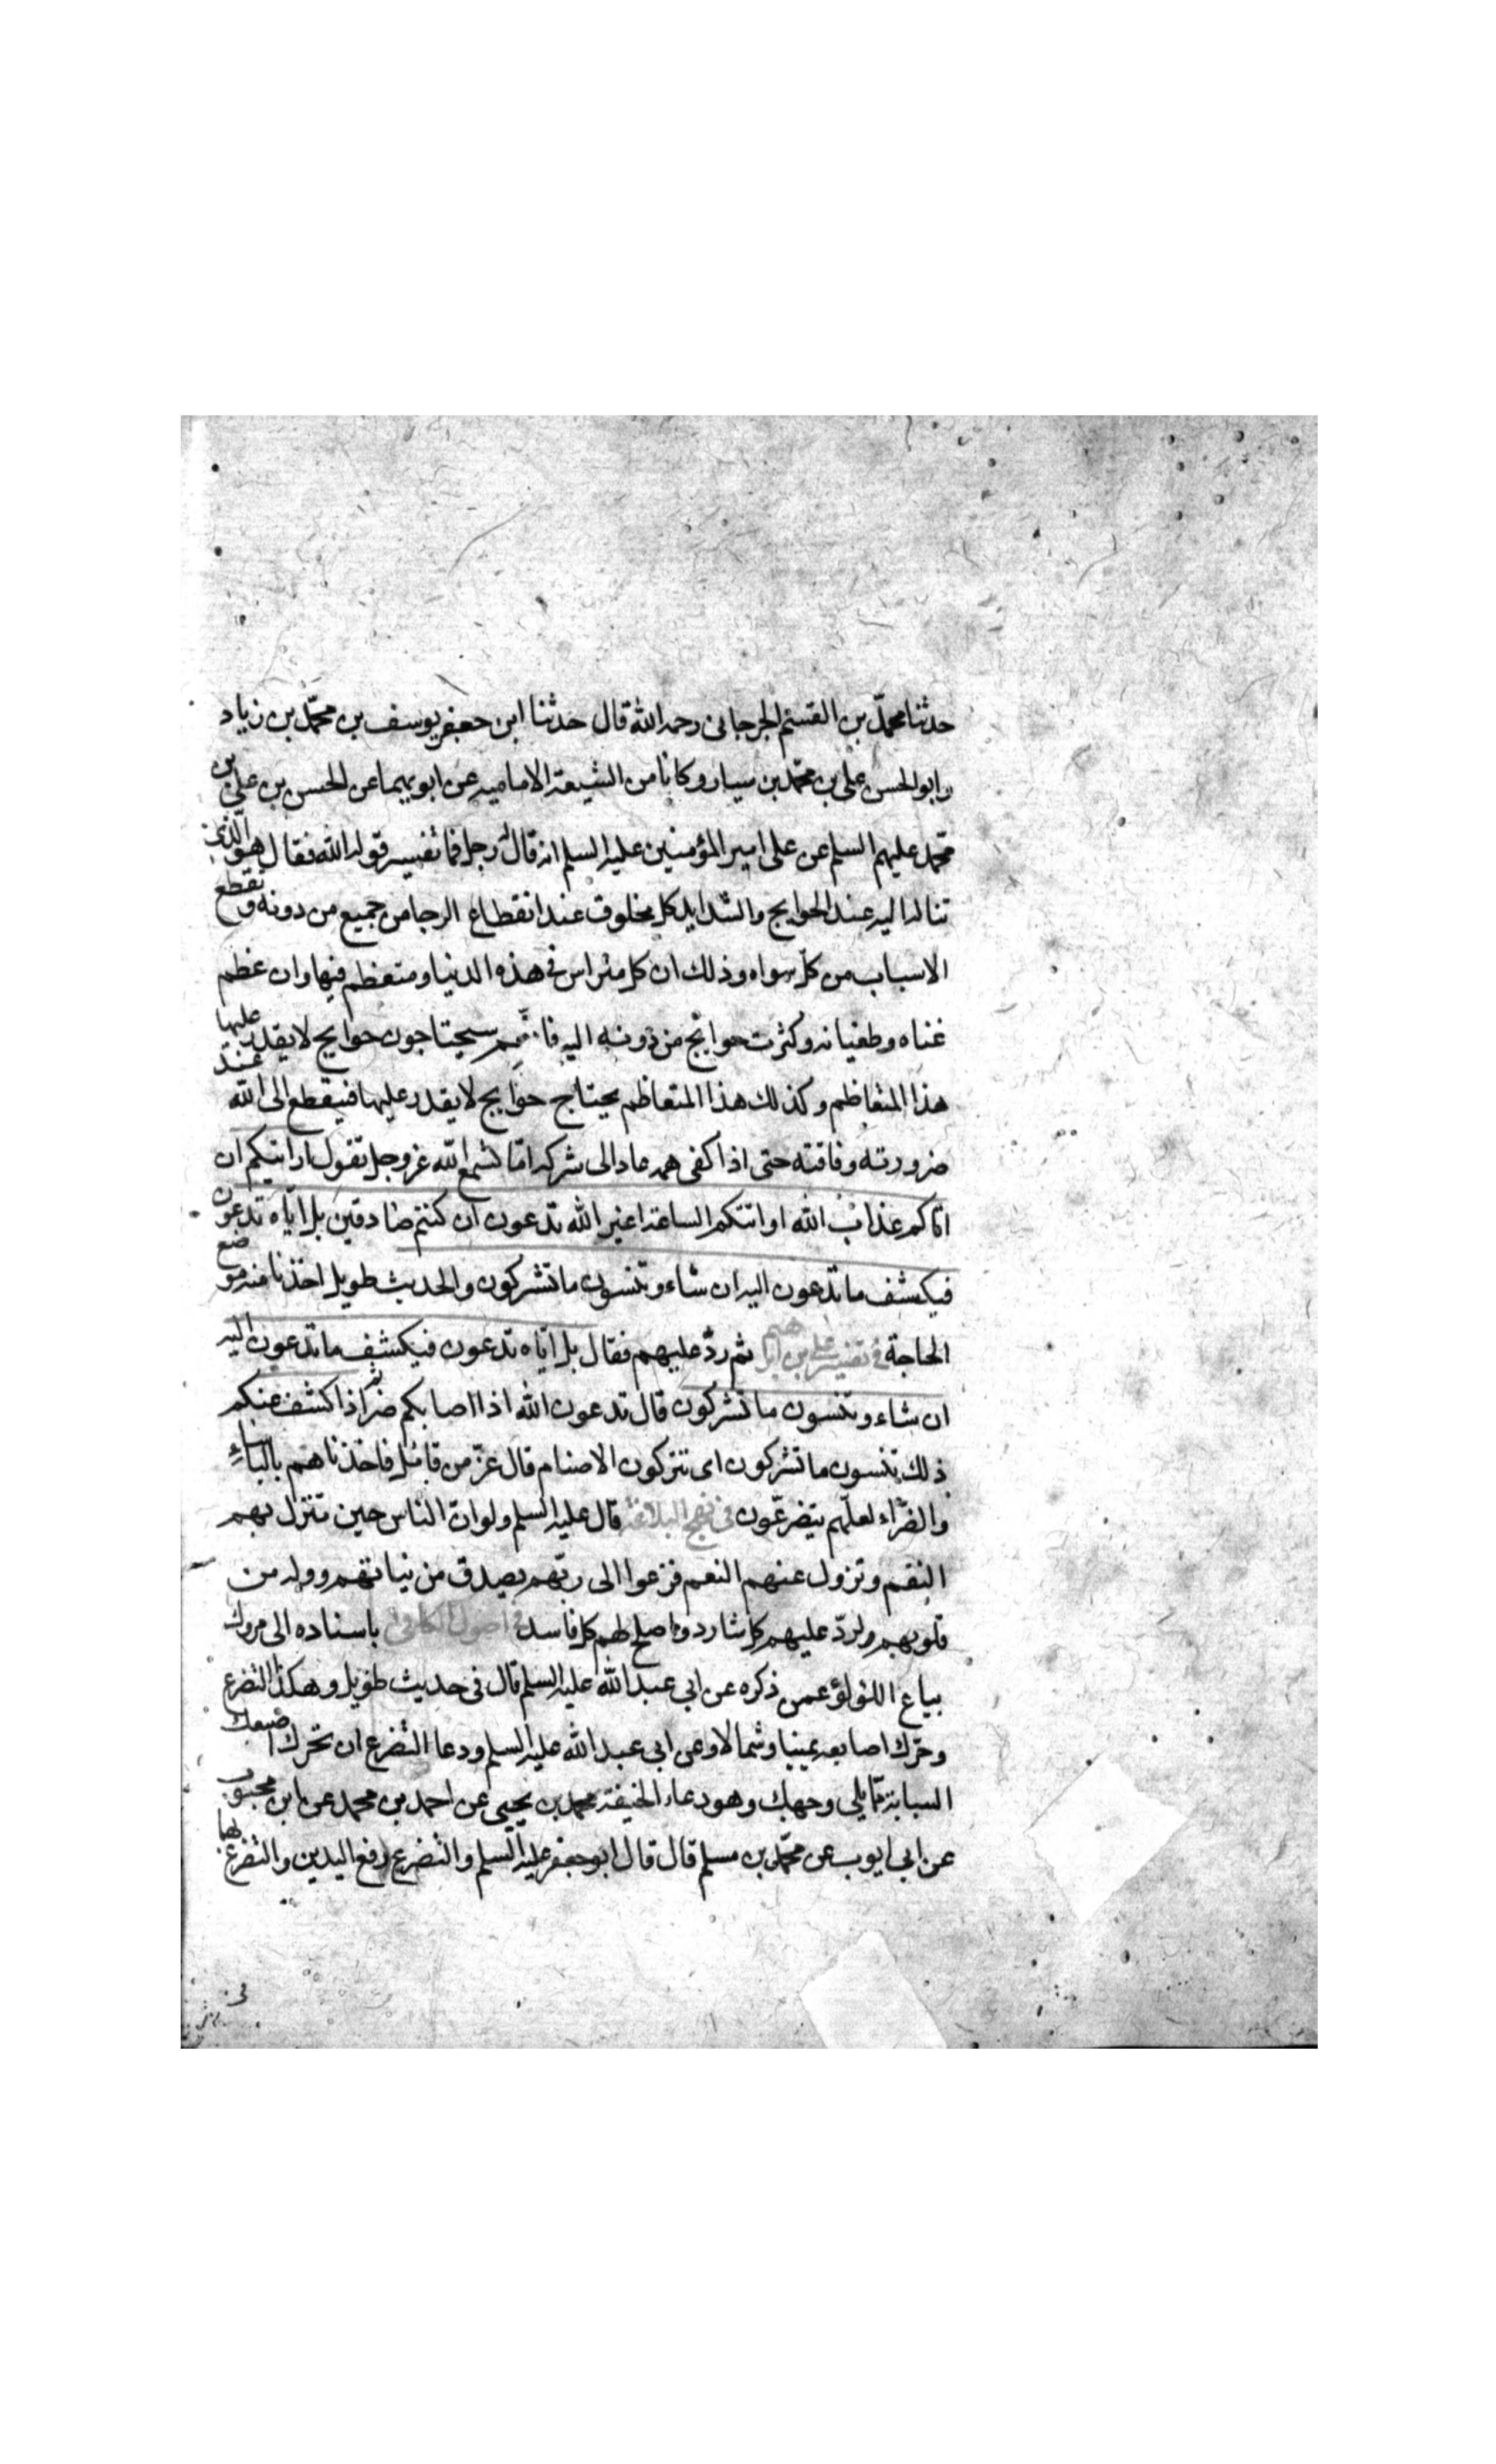 حدثنا محمّد بن القسم الجرجانى رحمه الله قال حدثنا ابن جعفر يوسف بن محمّد بن زياد
وابو الحسن على بن محمّد بن سيار وكانا من الشيعة الاماميه عن ابويهما عن الحسن بن على بن
محمّد عليهم السلم عن على امير المؤمنين عليه السلم انه قال له رجل فما تفسير قوله الله فقال هو الّذى
تتاله اليه عند الحوايج والشدايد كل مخلوق عند انقطاع الرجا من جميع من دونه وتقطع
الاسباب من كلّ سواه وذلك ان كل متراس فى هذه الدنيا ومتعظم فيها وان عظم
غناه وطغيانه وكثرت حوائج من دونه اليه فانهم سيحتاجون حوايج لا يقدر عليها
هذا المتعاظم وكذلك هذا المتعاظم يحتاج حوايج لا يقدر عليها فينقطع الى الله عند
ضرورته وفاقته حتى اذا كفى همه عاد الى شركه اما تسمع الله عز وجل تقول ارايتكم ان
اتاكم عذاب الله او اتتكم الساعة اغير الله تدعون ان كنتم صادقين بل ايّاه تدعون
فيكشف ما تدعون اليه ان شاء وتنسون ما تشركون والحديث طويل اخذنا منه موضع
الحاجة فى تفسير على بن ابرهيم ثم ردّ عليهم فقال بل ايّاه تدعون فيكشف ما تدعون اليه
ان شاء وتنسون ما تشركون قال تدعون الله اذا اصابكم ضر ثم اذا كشف عنكم
ذلك تنسون ما تشركون اى تتركون الاصنام قال عزّ من قائل فاخذناهم بالباساء
والضّراء لعلّهم يتضرعّون فى نهج البلاغة قال عليه السلم ولو انّ الناس حين تنزل بهم
النقم وتزول عنهم النعم فزعوا الى ربّهم بصدق من نياتهم ووله من
قلوبهم لردّ عليهم كل شارد واصلح لهم كل فاسد فى اصول الكافى باسناده الى مروك
بياع اللؤلؤ عمن ذكره عن ابى عبد الله عليه السلم قال فى حديث طويل وهكذا التضرع
وحرّك اصابعه يمينا وشمالا وعن ابى عبد الله عليه السلم ودعا التضرع ان تحرك اصبعك
السبابة ممّا يلى وجهك وهو دعاء الخيفة محمد بن يحيى عن احمد بن محمد عن ابن محبوب
عن ابى ايوب عن محمّد بن مسلم قال قال ابو جعفر عليه السلم والتضرع رفع اليدين والتضرع بها